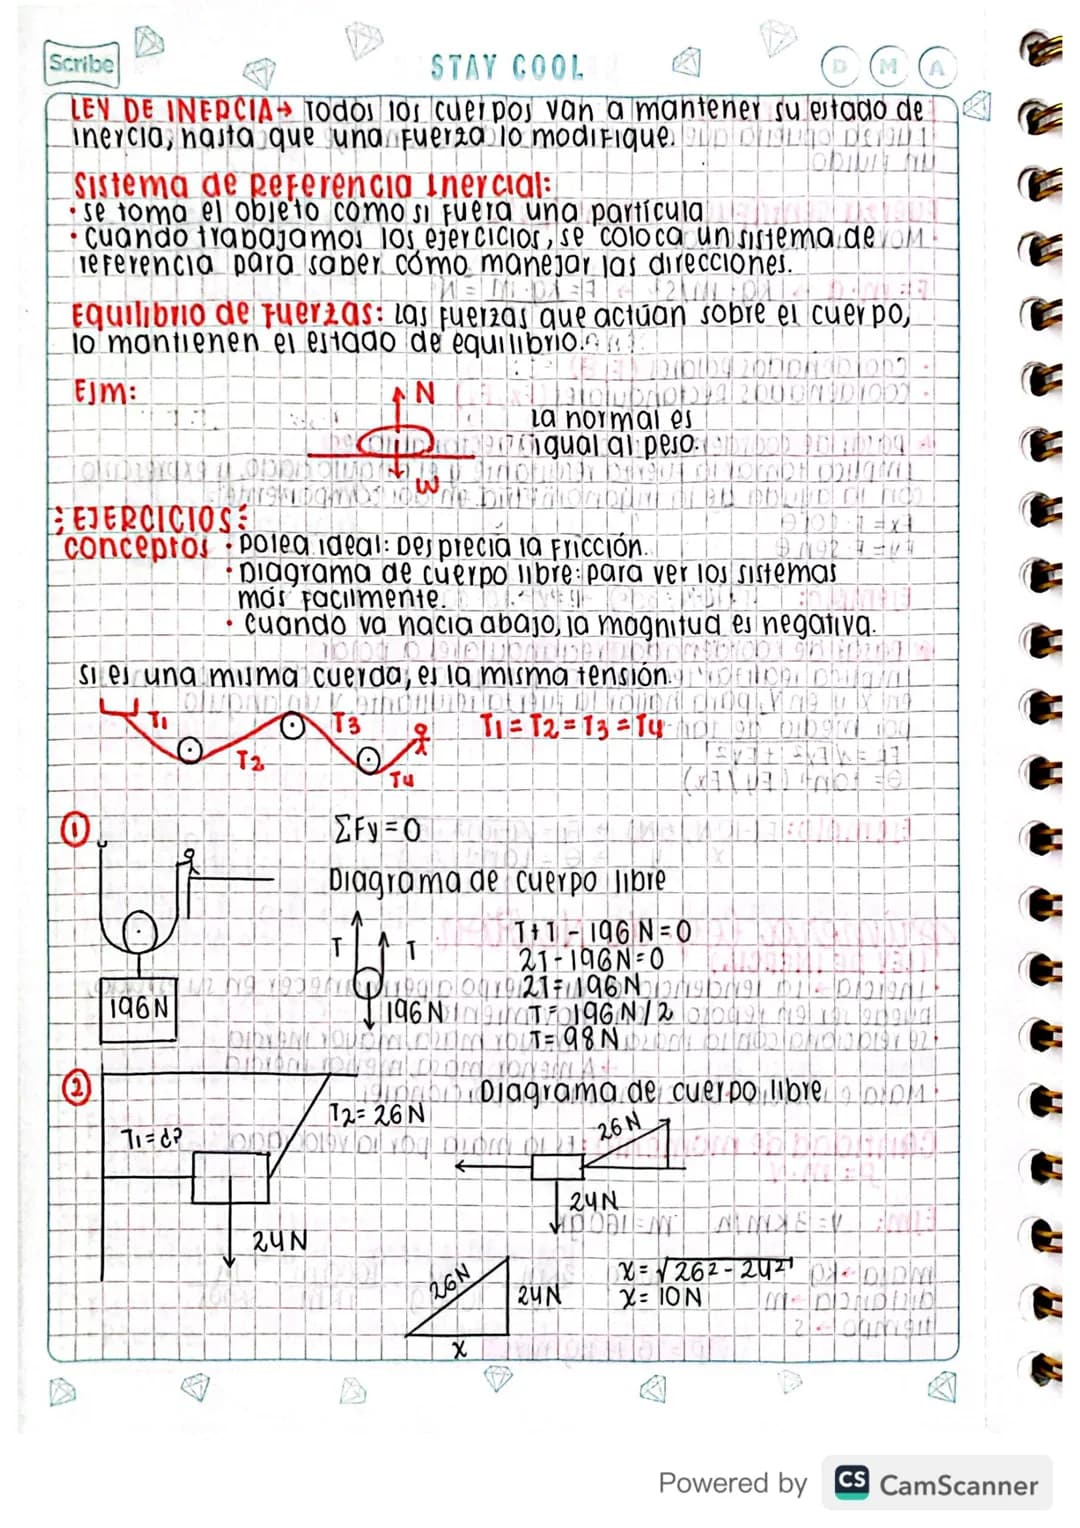 Scribe
STAY COOL
D M A
LEY DE INERCIA→ Todos los cuerpos van a mantener su estado de
inercia, hasta que una fuerza lo modifique.
Sistema de Referencia Inercial:
• se toma el objeto como si fuera una partícula
• cuando trabajamos los ejercicios, se coloca un sistema de
referencia para saber cómo manejar las direcciones.
Equilibrio de Fuerzas: Las fuerzas que actúan sobre el cuerpo,
lo mantienen el estado de equilibrio.
Ejm:
N
La normal es
igual al peso.
W
EJERCICIOS:
conceptos • Polea ideal: Desprecia la fricción.
• Diagrama de cuerpo libre: para ver los sistemas
más facilmente.
• cuando va hacia abajo, la magnitud es negativa.
Si es una misma cuerda, es la misma tensión.
T1 T2 T3 T4
T1 = T2 = T3 = T4
①
ΣFy = 0
Diagrama de cuerpo libre
T T
196 N
196 N
T + T - 196 N = 0
2T - 196 N = 0
2T = 196 N
T = 196 N / 2
T = 98 N
②
T1 = ¿?
T2 = 26 N
24 N
Diagrama de cuerpo libre
26 N
24 N
26 N
24 N
x
x = √26² - 24²
x = 10 N
Powered by CS CamScanner